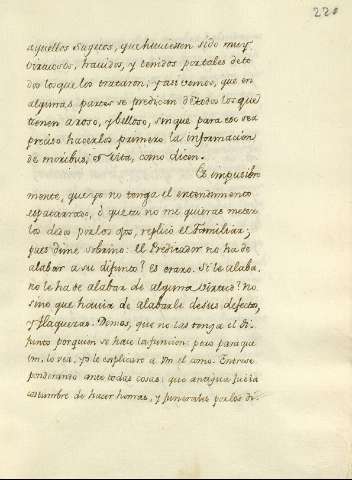 220
aquellos Sugetos, que huviessen sido muy
virtuosos, havidos, y tenidos por tales de to
dos los que los trataron; y assi vemos, que en
algunas partes se predican de todos los que
tienen a roso, y belloso, sin que para eso sea
preciso hacerlos primero la informacion
de moribus, et vita, como dicen.
Es impusible
mente, que yo no tenga el entendimento
espatarrado, ò que tu no me quieras meter
los dedos por los ojos, replicò el Familiar;
pues dime sobrino: el Predicador no ha de
alabar a su difunto? Es craro. Si le alaba,
no le ha de alabar de alguna virtud? No.
sino que havia de alabarle de sus defectos,
y flaquezas. Demos, que no las tenga el di-
funto por quien se hace la funcion: pero para que
Vm. lo vea, yo le explicarè a Vm el como. Entrose
ponderando ante todas cosas: que antigua fuesse
costumbre de hacer honras, y funerales por los di-